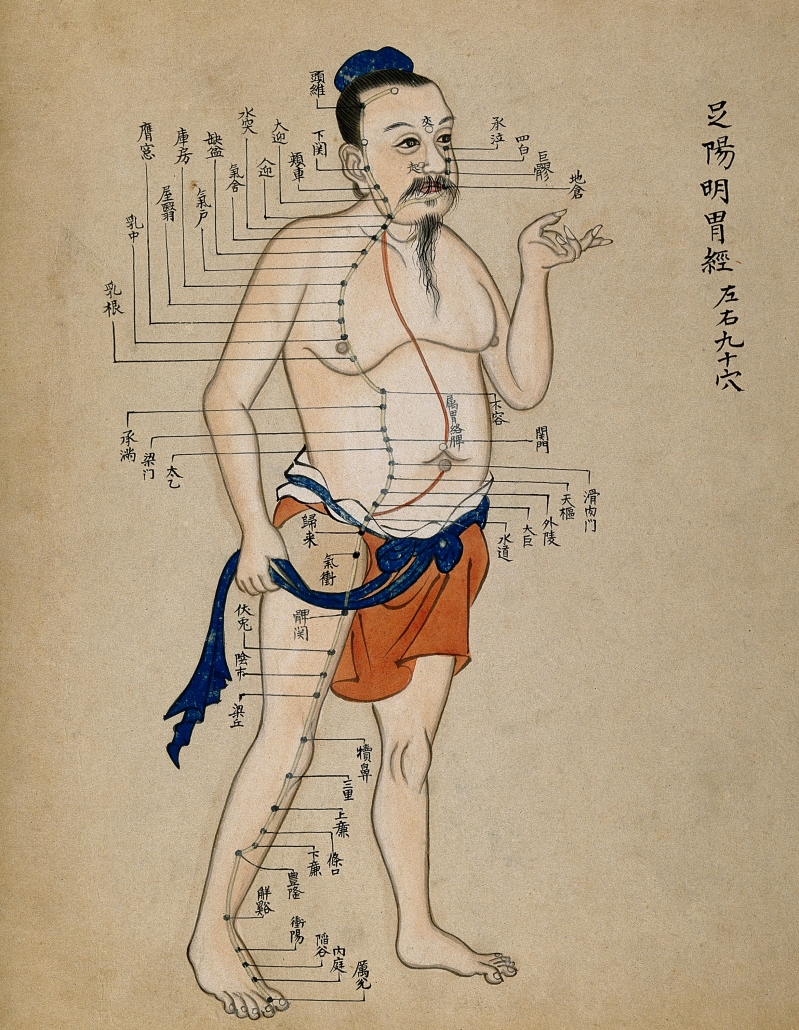 足陽明胃經 左右九十穴
頭維
下関
頬車
承泣
四白
巨髎
地倉
大迎
人迎
水突
氣舎
缺盆
氣戸
庫房
屋翳
膺窓
乳中
乳根
不容
承満
梁门
関門
太乙
滑肉门
天樞
外陵
大巨
水道
属胃絡脾
歸来
氣衝
髀関
伏兎
陰市
梁丘
犢鼻
三里
上廉
條口
下廉
豊隆
解谿
衝陽
陥谷
内庭
厲兌